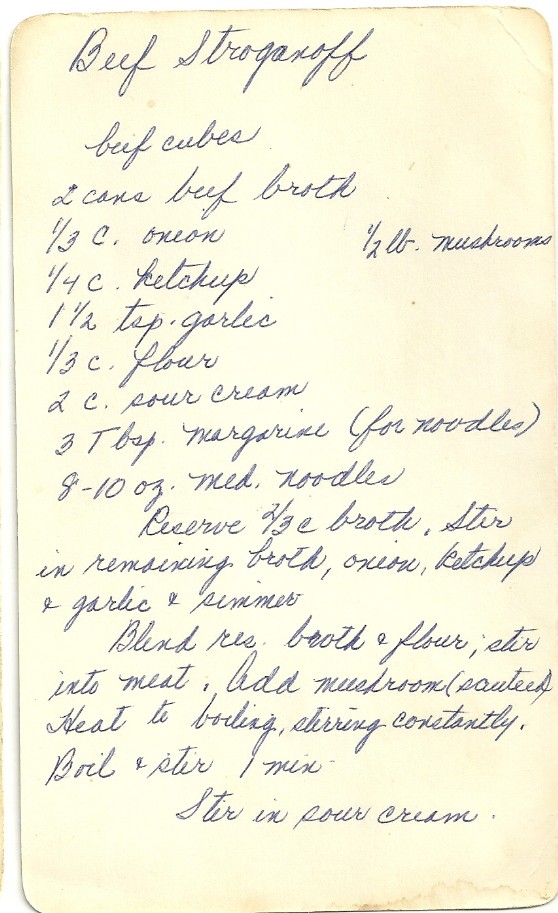 Beef Stroganoff
beef cubes
2 cans beef broth
1/3 c. onion
1/2 lb. mushrooms
1/4 c. ketchup
1 1/2 tsp. garlic
1/3 c. flour
2 c. sour cream
3 Tbsp. margarine (for noodles)
8-10 oz. med. noodles
Reserve 2/3 c broth. Stir
in remaining broth, onion, ketchup
& garlic & simmer
Blend res. broth & flour; stir
into meat. Add mushroom (sauteed)
Heat to boiling, stirring constantly.
Boil & stir 1 min
Stir in sour cream.